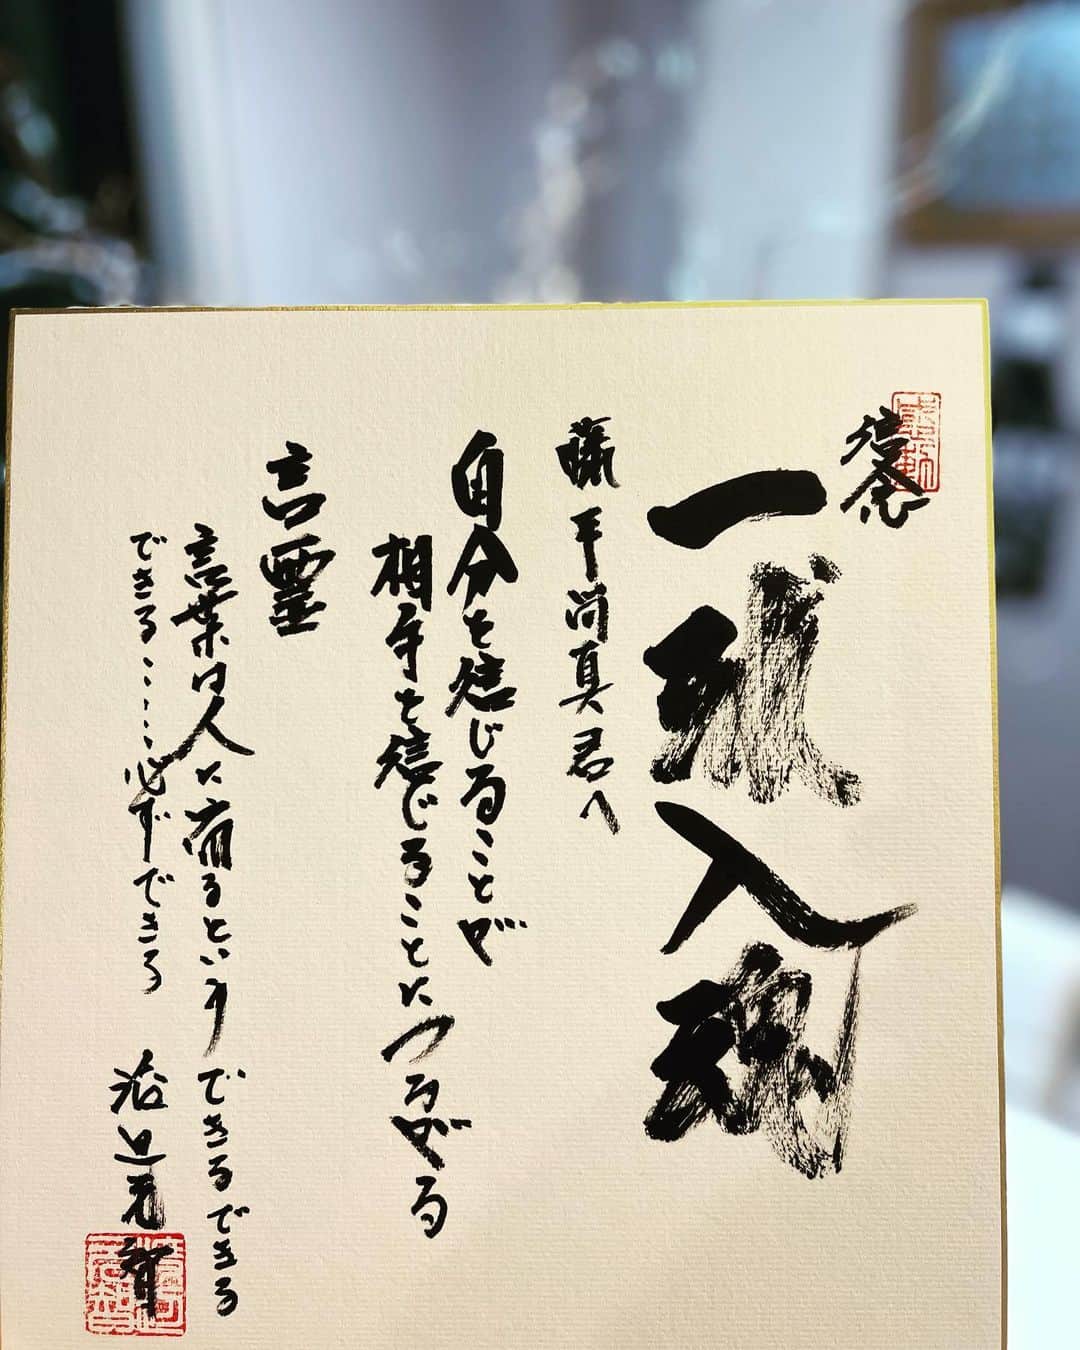 信念
一球入魂
藤平尚真君へ
自分を信じることが
相手を信じることにつながる
言霊
言葉は人に宿るといいます できるできる
できる……必ずできる